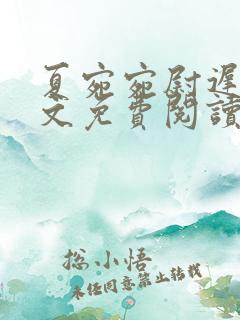 夏宛宛尉遲
文免費閱讀
总小悟
未经同意禁止转载